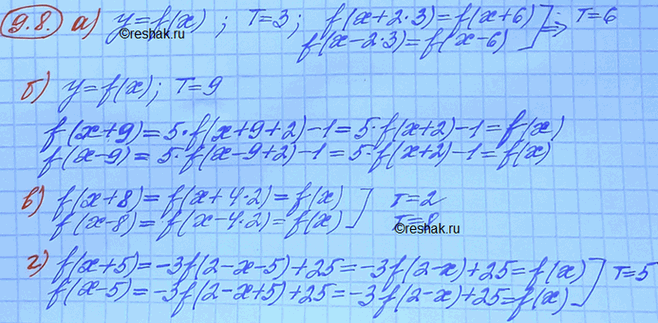 9.8. а) y=f(x) ; T=3; f(x+2·3)=f(x+6) ] ⇒ T=6
©reshak.ru
f(x-2·3)=f(x-6)
б) y=f(x); T=9
f(x+9)=5·f(x+9+2)-1=5·f(x+2)-1=f(x)
f(x-9)=5·f(x-9+2)-1=5·f(x+2)-1=f(x)
в) f(x+8)=f(x+4·2)=f(x) ] T=2
f(x-8)=f(x-4·2)=f(x) ] T=8
©reshak.ru
г) f(x+5)=-3f(2-x-5)+25=-3f(2-x)+25=f(x) ] T=5
f(x-5)=-3f(2-x+5)+25=-3f(2-x)+25=f(x)